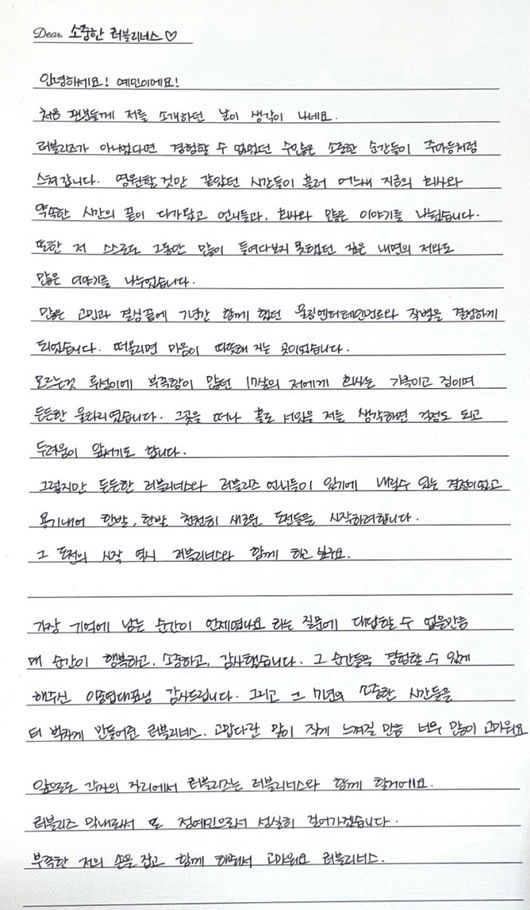 Dear. 소중한 러블리너스♡
안녕하세요! 예인이에요!
처음 팬분들께 저를 소개하던 날이 생각이 나네요.
러블리즈가 아니었다면 경험할 수 없었던 수많은 소중한 순간들이 주마등처럼
스쳐갑니다. 영원할것만 같았던 시간들이 흘러 어느새 지금의 회사와
약속한 시간의 끝이 다가왔고 언니들과, 회사와 많은 이야기를 나눴습니다.
또한 저 스스로도 그동안 많이 들여다보지 못했던 깊은 내면의 저와도
많은 이야기를 나누었습니다.
많은 고민과 결심끝에 7년간 함께 했던 울림엔터테인먼트와 작별을 결정하게
되었습니다. 떠올리면 마음이 따뜻해 지는 곳이었습니다.
모르는것 투성이에 부족함이 많던 17살의 저에게 회사는 가족이고 집이며
든든한 울타리였습니다. 그곳을 떠나 홀로 서있을 저를 생각하면 걱정도 되고
두려움이 앞서기도 합니다.
그렇지만 든든한 러블리너스와 러블리즈 언니들이 있기에 내릴수 있는 결정이었고
용기내어 한발, 한발 천천히 새로운 도전들을 시작하려합니다.
그 도전의 시작 역시 러블리너스와 함께 하고 싶어요.
가장 기억에 남는 순간이 언제였나요 라는 질문에 대답할 수 없을만큼
매 순간이 행복하고, 소중하고, 감사했습니다. 그 순간들을 경험할 수 있게
해주신 이중엽대표님 감사드립니다. 그리고 그 7년의 소중한 시간들을
더 벅차게 만들어준 러블리너스. 고맙다란 말이 작게 느껴질 만큼 너무 많이 고마워요
앞으로도 각자의 자리에서 러블리즈는 러블리너스와 함께 할거에요.
러블리즈 막내로서 또 정예인으로서 성실히 걸어가겠습니다.
부족한 저의 손을 잡고 함께 해줘서 고마워요 러블리너스.